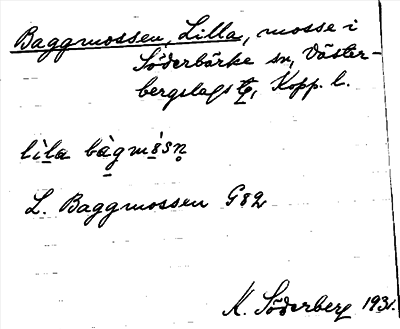 Baggmossen, Lilla, mosse i
Söderbärke sn, Väster-
bergslags tg, Kopp. l.
lìla bàgmòsn̥
L. Baggmossen G82
K. Söderberg 1931.